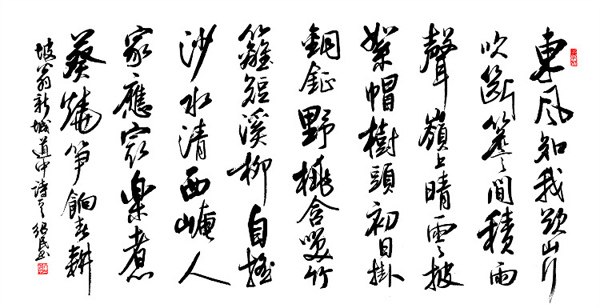 東風知我欲山行
吹斷簷間積雨
聲嶺上晴雲披
絮帽樹頭初日掛
銅鉦野桃含笑竹
籬短溪柳自搖
沙水清西崦人
家應最樂煮
葵燒筍餉春耕
坡翁新城道中詩